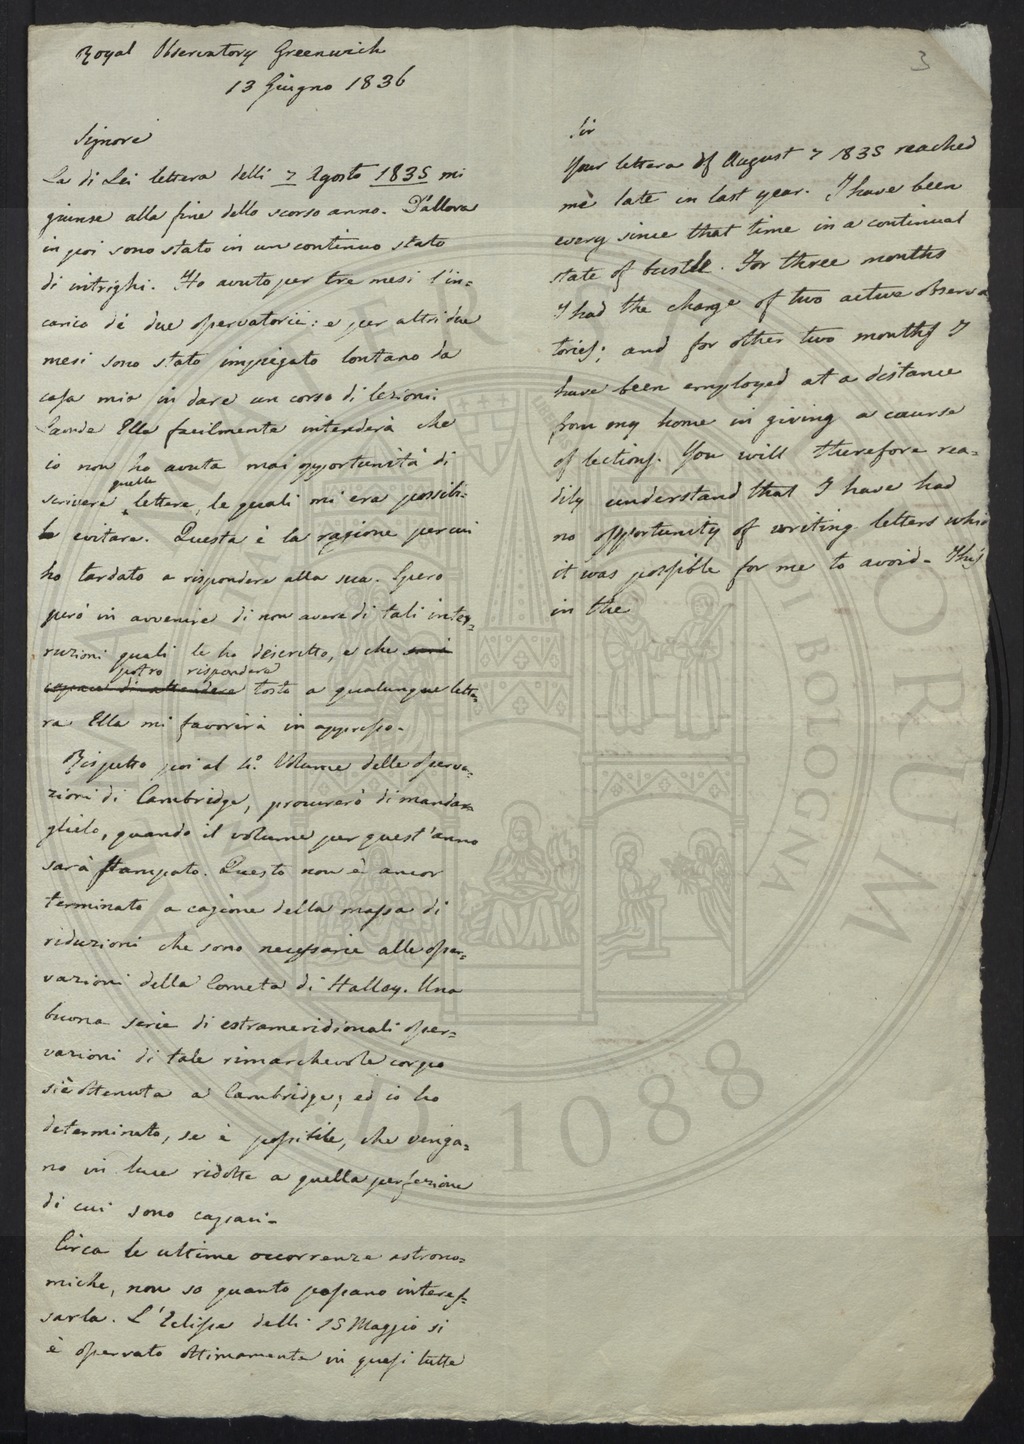 Royal Observatory Greenwich
13 Giugno 1836
3
Signore
La di Lei lettera delli 7 Agosto 1835 mi
giunse alla fine dello scorso anno. D'allora
in poi sono stato in un continuo stato
di intrighi. Ho avuto per tre mesi l'in=
carico de due osservatorii: e per altri due
mesi sono stato impiegato lontano da
casa mia in dare un corso di lezioni.
Laonde Ella facilmente intenderà che
io non ho avuta mai opportunità di
scrivere quelle lettere, le quali mi era possibi-
le evitare. Questa è la ragione per cui
ho tardato a rispondere alla sua. Spero
però in avvenire di non avere di tali inter=
ruzioni quali le ho descritto, e che sarò
capace di attendere potrò rispondere tosto a qualunque lette=
ra Ella mi favorirà in appresso.
Rispetto poi al 4º Volume delle osserva=
zioni di Cambridge, procurerò di mandar=
glielo, quando il volume per quest'anno
sarà stampato. Questo non è ancor
terminato a cagione della massa di
riduzioni che sono necessarie alle osser=
vazioni della Cometa di Halley. Una
buona serie di estrameridionali osser=
vazioni di tale rimarchevole corpo
si è ottenuta a Cambridge; ed io ho
determinato, se è possibile, che venga=
no in luce ridotte a quella perfezione
di cui sono capaci.
Circa le ultime occorrenze astrono=
miche, non so quanto possano interes=
sarla. L'Eclisse delli 15 Maggio si
è osservato ottimamente in quasi tutte
Sir
Your lettera of August 7 1835 reached
me late in last year. I have been
every since that time in a continual
state of bustle. For three months
I had the charge of two active observa
tories; and for other two months I
have been employed at a distance
from my home in giving a course
of lections. You will therefore rea=
dily understand that I have had
no opportunity of writing letters whic
it was possible for me to avoid. This
in the
ALMA MATER STUDIORUM
UNIVERSITÀ DI BOLOGNA
A.D. 1088